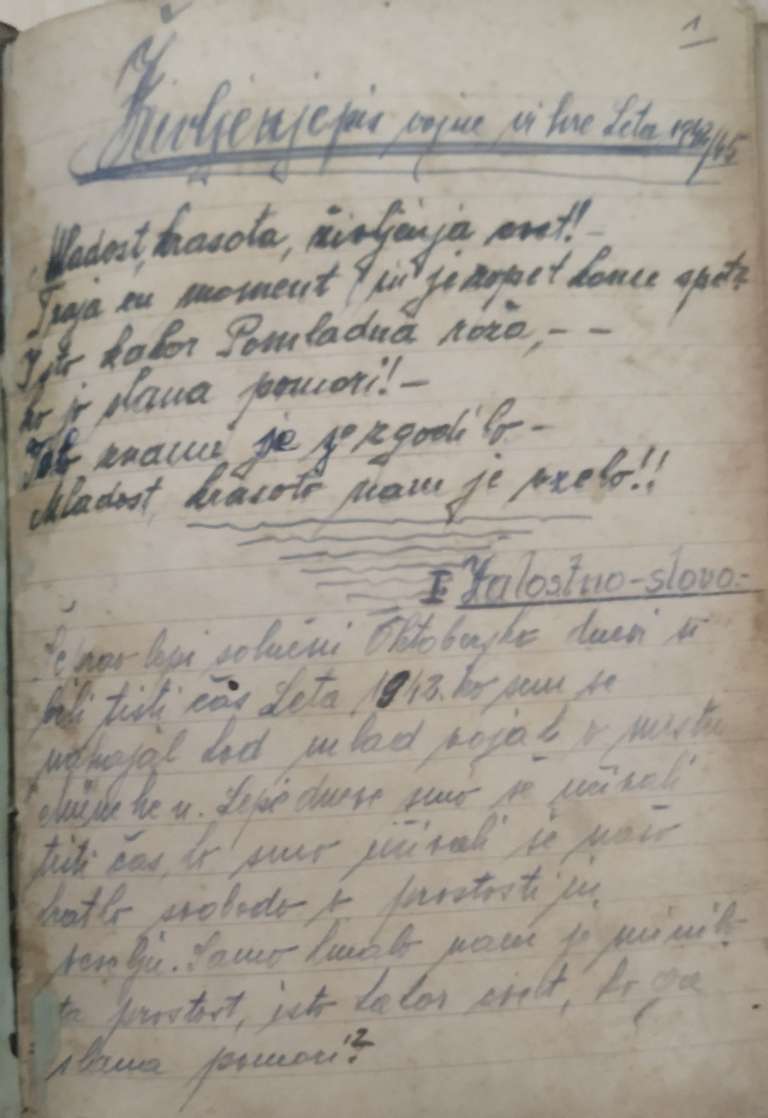 1
Življenjepis vojne vihre Leta 1943/45
Mladost, krasota, življenja cvet! -
Traja en moment in je zopet konec spet?
Isto kakor Pomladna roža, - -
ko jo slana pomori! -
Tako znami je se zgodilo -
Mladost, krasoto nam je vzelo!!
I Žalostno-slovo.-
lepi solnčni Oktobersko dnevi so
bili tisti čas Leta 1943. ko sem se
nahajal kod mlad vojak v mestu
München. Lepe dneve smo še uživali
tisti čas, ko smo uživali še našo
kratko svobodo v prostosti in
veselju. Samo kmalo nam je minila
ta prostost, isto kakor cvet, ko ga
slana pomori?